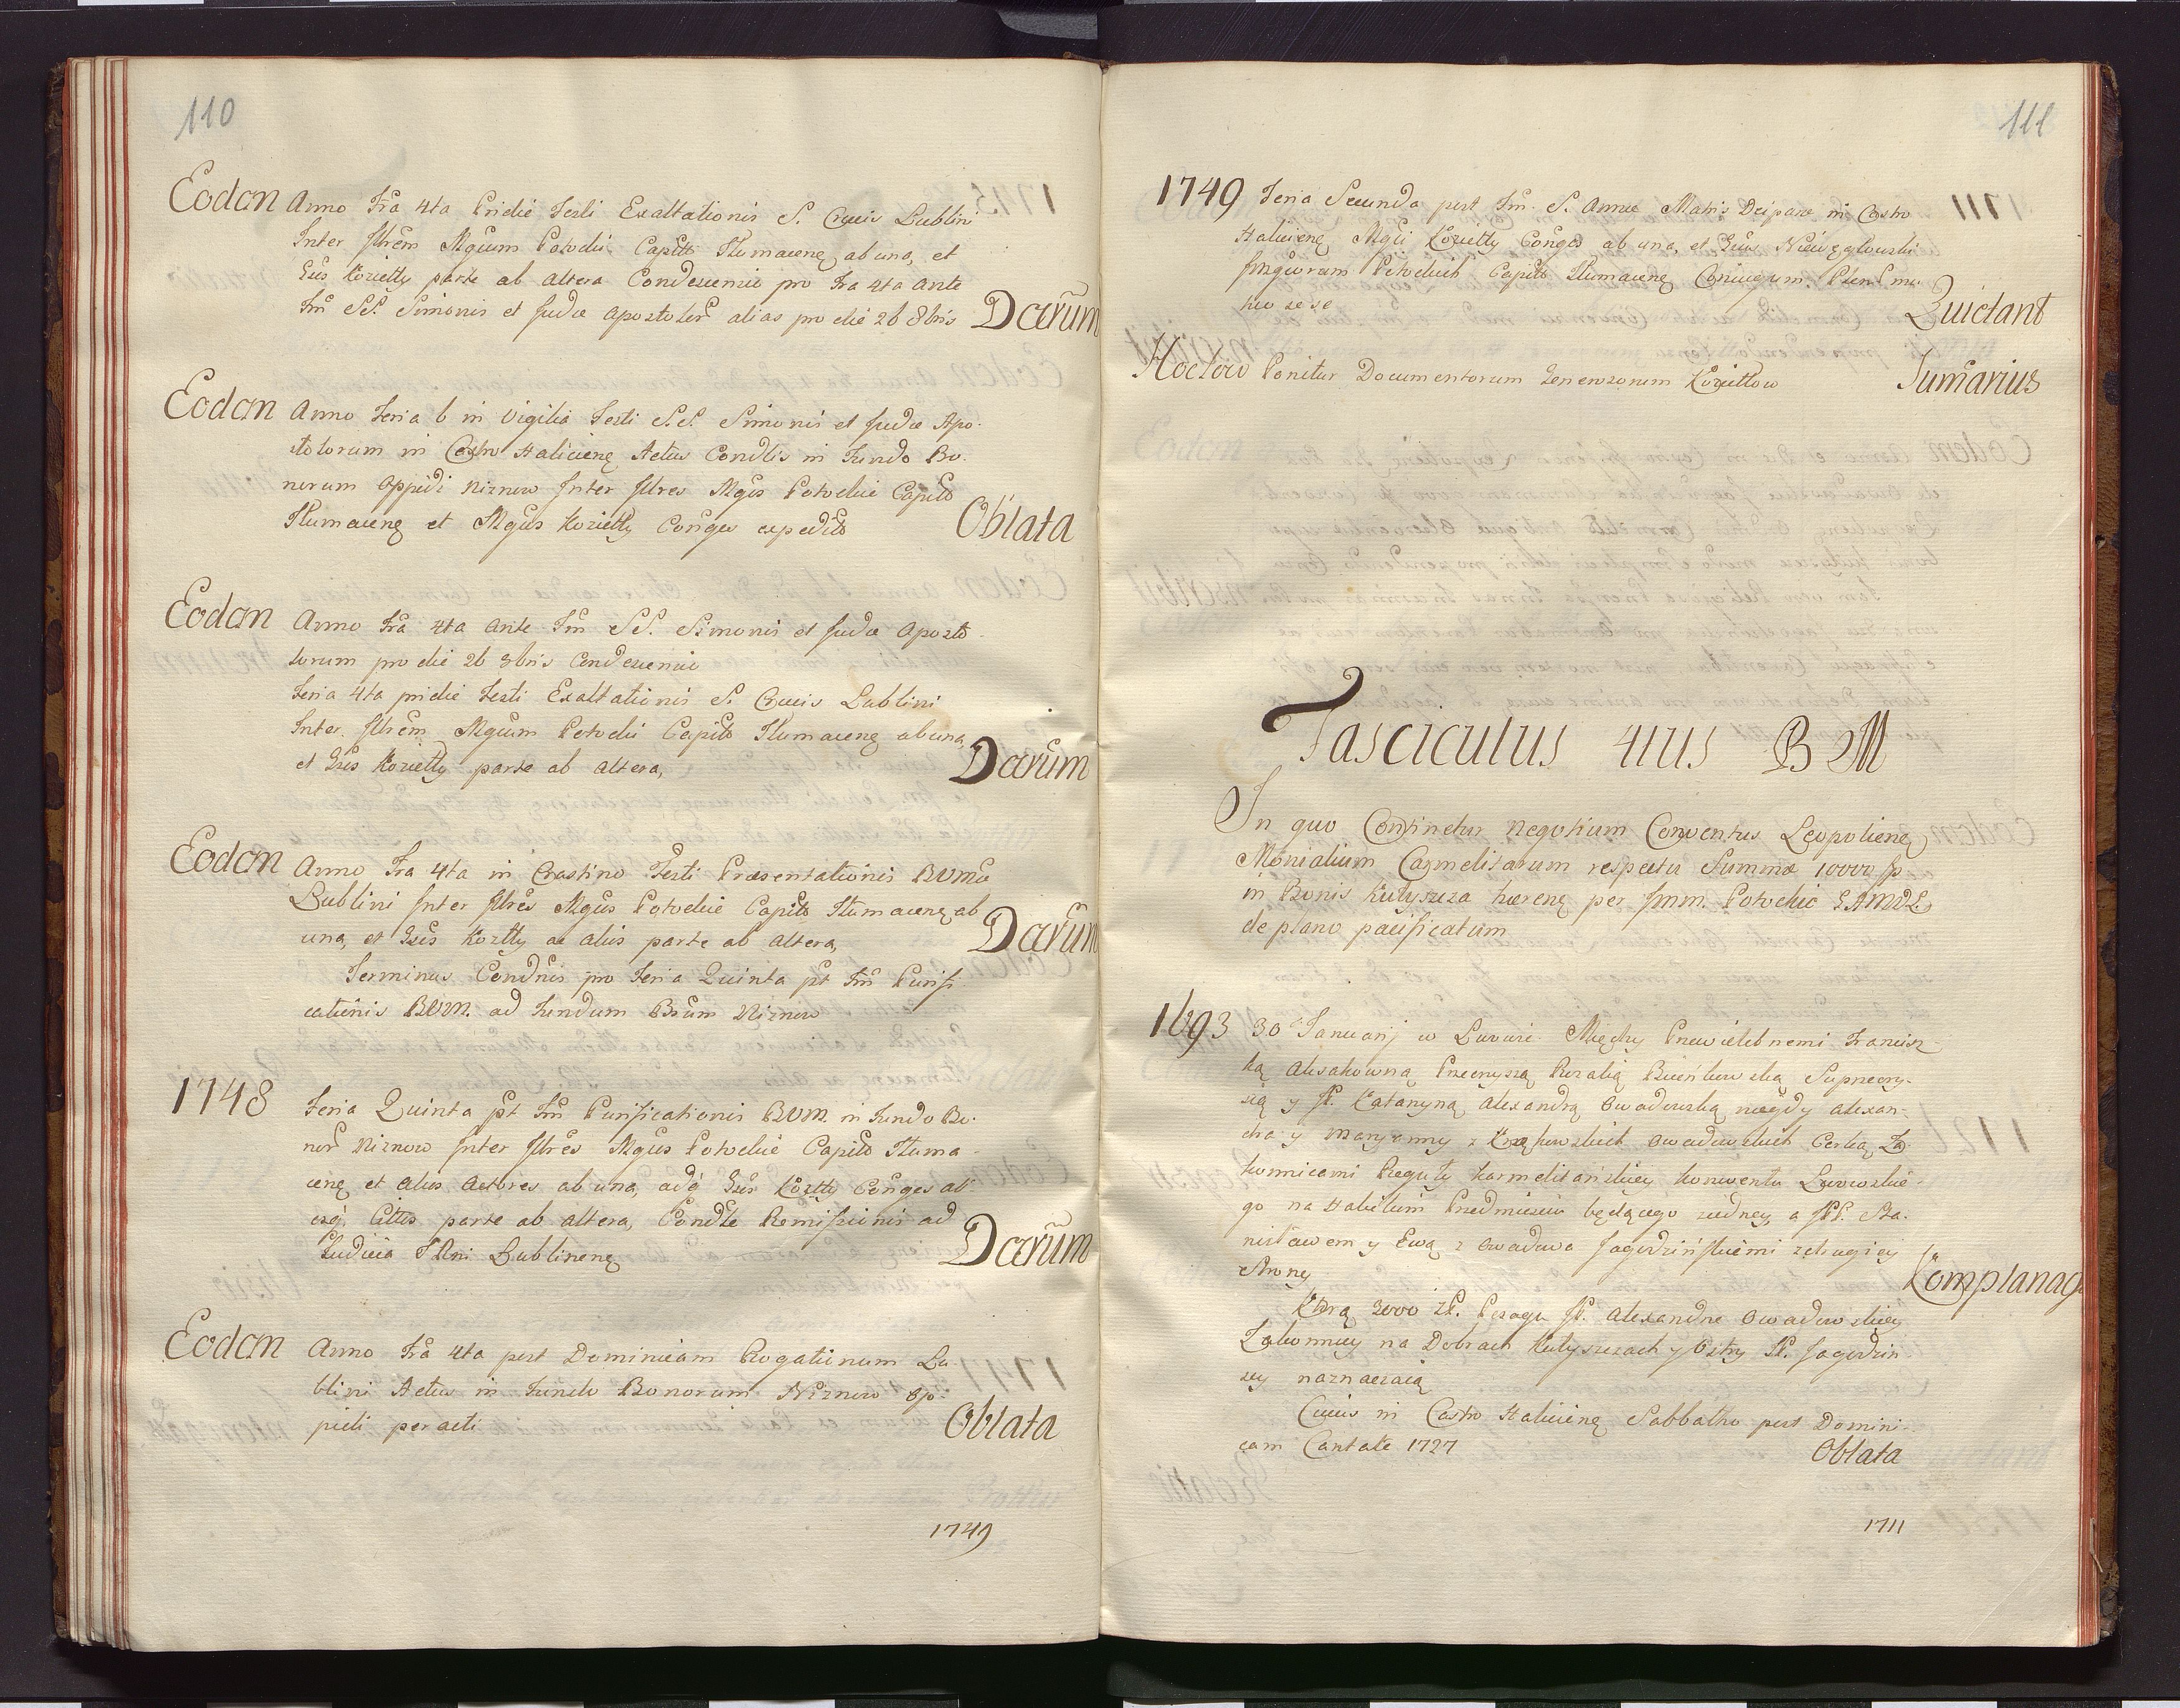 110
Eodem Anno Fra 4ta Pridie Festi Exaltationis S. Crucis Lublini
Inter Illrem Mgcum Potocki Captm Tlumacens ab una, et
Gsos Kozietty parte ab altera Condescensie pro Fra 4ta ante
Fm SS. Simonis et Judæ Apostolor alias pro die 26 8bris Decrum
Eodem Anno Feria 6 in Vigilia Festi S.S. Simonis et Judæ Apo-
stolorum in Castro Haliciens Actus Condlis in Fundo Bo-
norum Oppidi Niznow Inter Illres Mgcos Potockie Capit
Tlumacens et Mgcos Kozietty Conges expedit Oblata
Eodem Anno Fra 4ta ante Fm SS. Simonis et Judæ Aposto-
lorum pro die 26 8bris Condescensie
Feria 4ta pridie Festi Exaltationis S. Crucis Lublini
Inter Illrem Mgcum Potocki Capit Tlumacens ab una,
et Gsos Kozietty parte ab altera, Decrum
Eodem Anno Fra 4ta in Crastino Festi Præsentationis BVMæ
Lublini Inter Illres Mgcos Potockie Capit Tlumacens ab
una, et Gsos Koztty ac alis parte ab altera, Decrum
Terminus Condnis pro Feria Quinta pt Fm Purifi
cationis BVM. ad Fundum Bnum Niznow
1748 Feria Quinta pt Fm Purificationis BVM. in Fundo Bo-
nor Niznow Inter Illres Mgcos Potockie Capit Tluma-
cens et alios Actores ab una, adq Gsos Koztty Conges ali
osq Cittos parte ab altera, Condle Remissionis ad
Iudicia Tlni Lublinens Decrum
Eodem Anno Fra 4ta post Dominicam Rogationum Lu
blini Actus in Fundo Bonorum Niznow Op-
pidi peracti Oblata
1749
111
1749 Feria Secunda post Fm. S. Annæ Matris Deiparæ in Castro
Haliciens Mgci Kozietty Conges ab una, et Gsos Nieweglowski
Imgcorum Potockich Capit Tlumacens Coniugum. Plent mu-
tuo sese Quietant
Hocloco Ponitur Documentorum Generosorum Koziettow Sumarius
Fasciculus 4tus B M
In quo Continetur negotium Conventus Leopoliens
Monialium Carmelitarum respectu Summæ 10000 fp
in Bonis Kutyszcza hærens per Imm. Potockie GAMDL
de plano pacificatum
1693 30 Januarij w Lwowie Między Przewielebnemi Francisz-
ką Aksakowną Przeoryszą Rozalią Bieńkowską Suprzeory-
szą y P. Katarzyną Alexandrą Owadowską niegdy Alexan-
dra y Maryanny z Krakowskich Owadowskich Corką, Za-
konnicami Reguły Karmelitańskiey Konwentu Lwowskie-
go na Halickim Przedmieściu będącego z iedney, a PP. Sta-
nisławem y Ewą z Owadowa Jagodzińskiemi z drugiey
Strony Komplanacy
Którą 3000 zł. Posagu P. Alexandrze Owadowskiey
Zakonnicy na Dobrach Kutyszczach y Ostry P. Jagodzin-
scy naznaczaią
Cuius in Castro Haliciens Sabbatho post Domini-
cam Cantate 1727 Oblata
1711